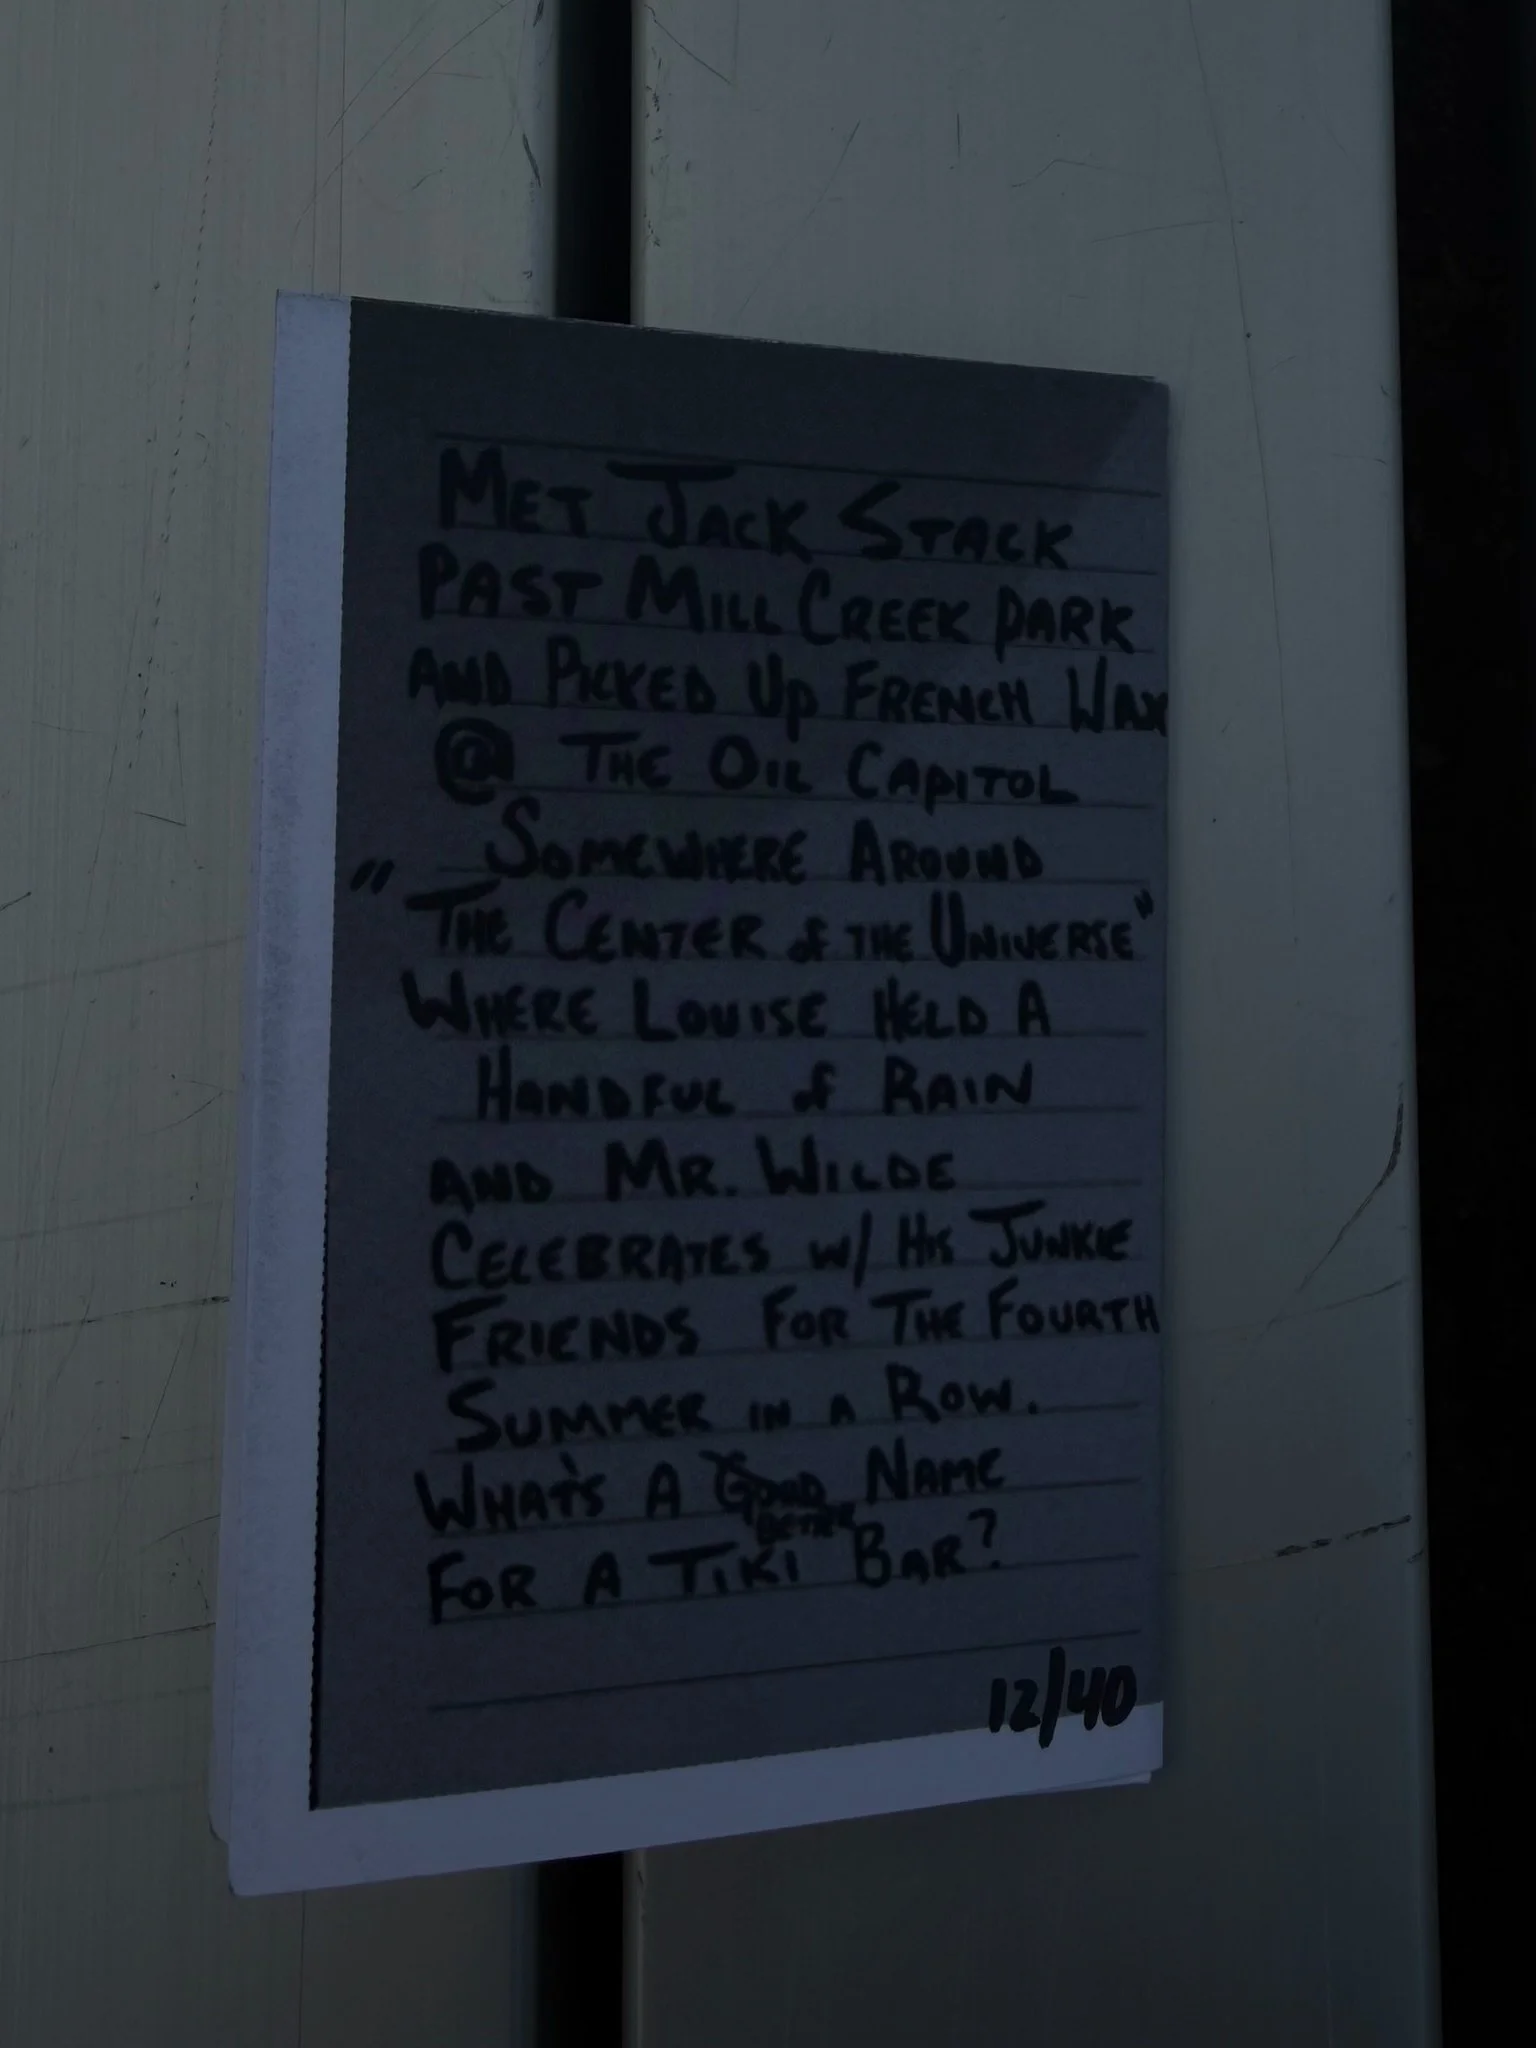 MET JACK STACK
PAST MILL CREEK PARK
AND PICKED UP FRENCH WAX
@ THE OIL CAPITOL
SOMEWHERE AROUND
"THE CENTER of THE UNIVERSE"
WHERE LOUISE HELD A
HANDFUL of RAIN
AND MR. WILDE
CELEBRATES W/ HIS JUNKIE
FRIENDS FOR THE FOURTH
SUMMER IN A ROW.
WHAT'S A GOOD NAME
BETTER
FOR A TIKI BAR?
12/40